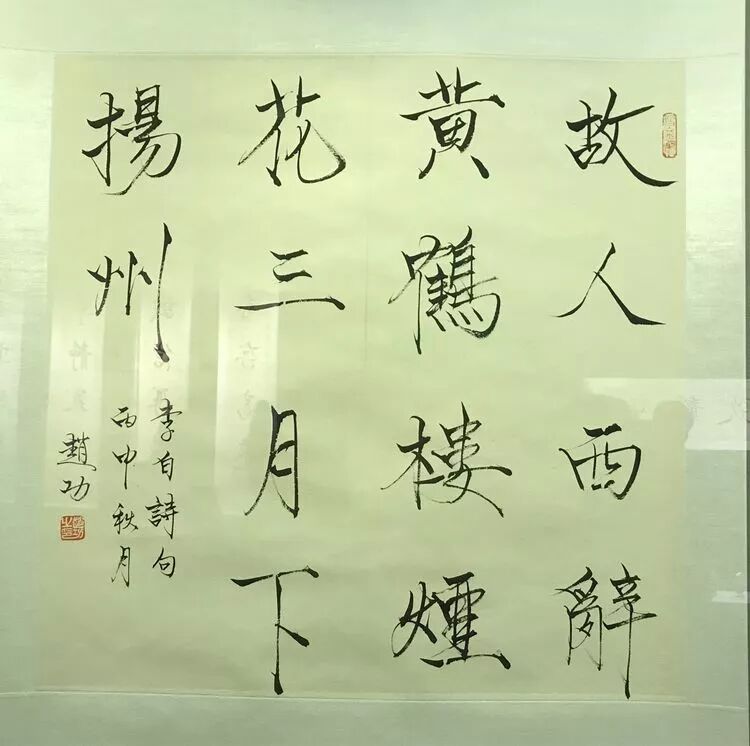 故人西辭
黄鶴樓煙
花三月下
揚州
李白詩句
丙申秋月
趙功